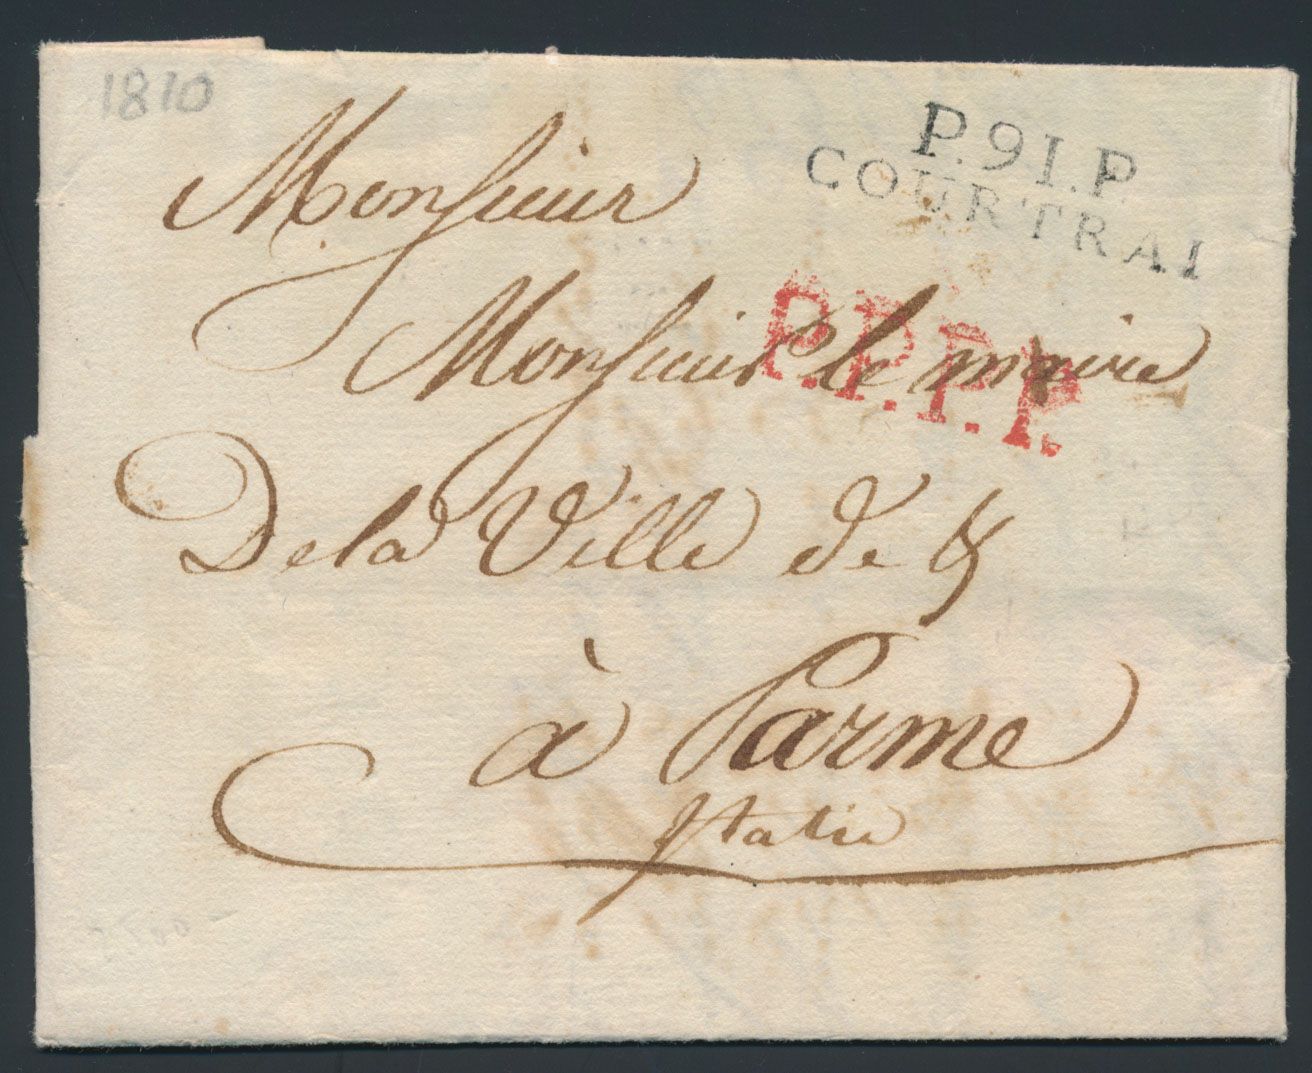 1810
P.91.P.
COURTRAI
Monsieur
P.P.P.P.
Monsieur le maire
De la Ville de &
à Parme
Italie